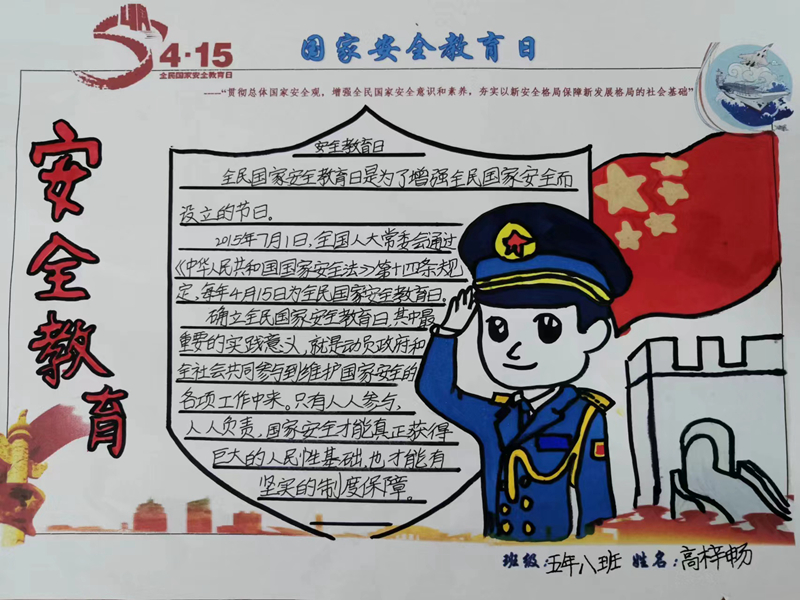 4·15
全民国家安全教育日
国家安全教育日
——“贯彻总体国家安全观，增强全民国家安全意识和素养，夯实以新安全格局保障新发展格局的社会基础”
安全教育
安全教育日
全民国家安全教育日是为了增强全民国家安全而
设立的节日。
2015年7月1日,全国人大常委会通过
《中华人民共和国国家安全法》第十四条规
定,每年4月15日为全民国家安全教育日。
确立全民国家安全教育日,其中最
重要的实践意义,就是动员政府和
全社会共同参与到维护国家安全的
各项工作中来。只有人人参与,
人人负责,国家安全才能真正获得
巨大的人民性基础,也才能有
坚实的制度保障。
班级:五年八班 姓名:高梓畅